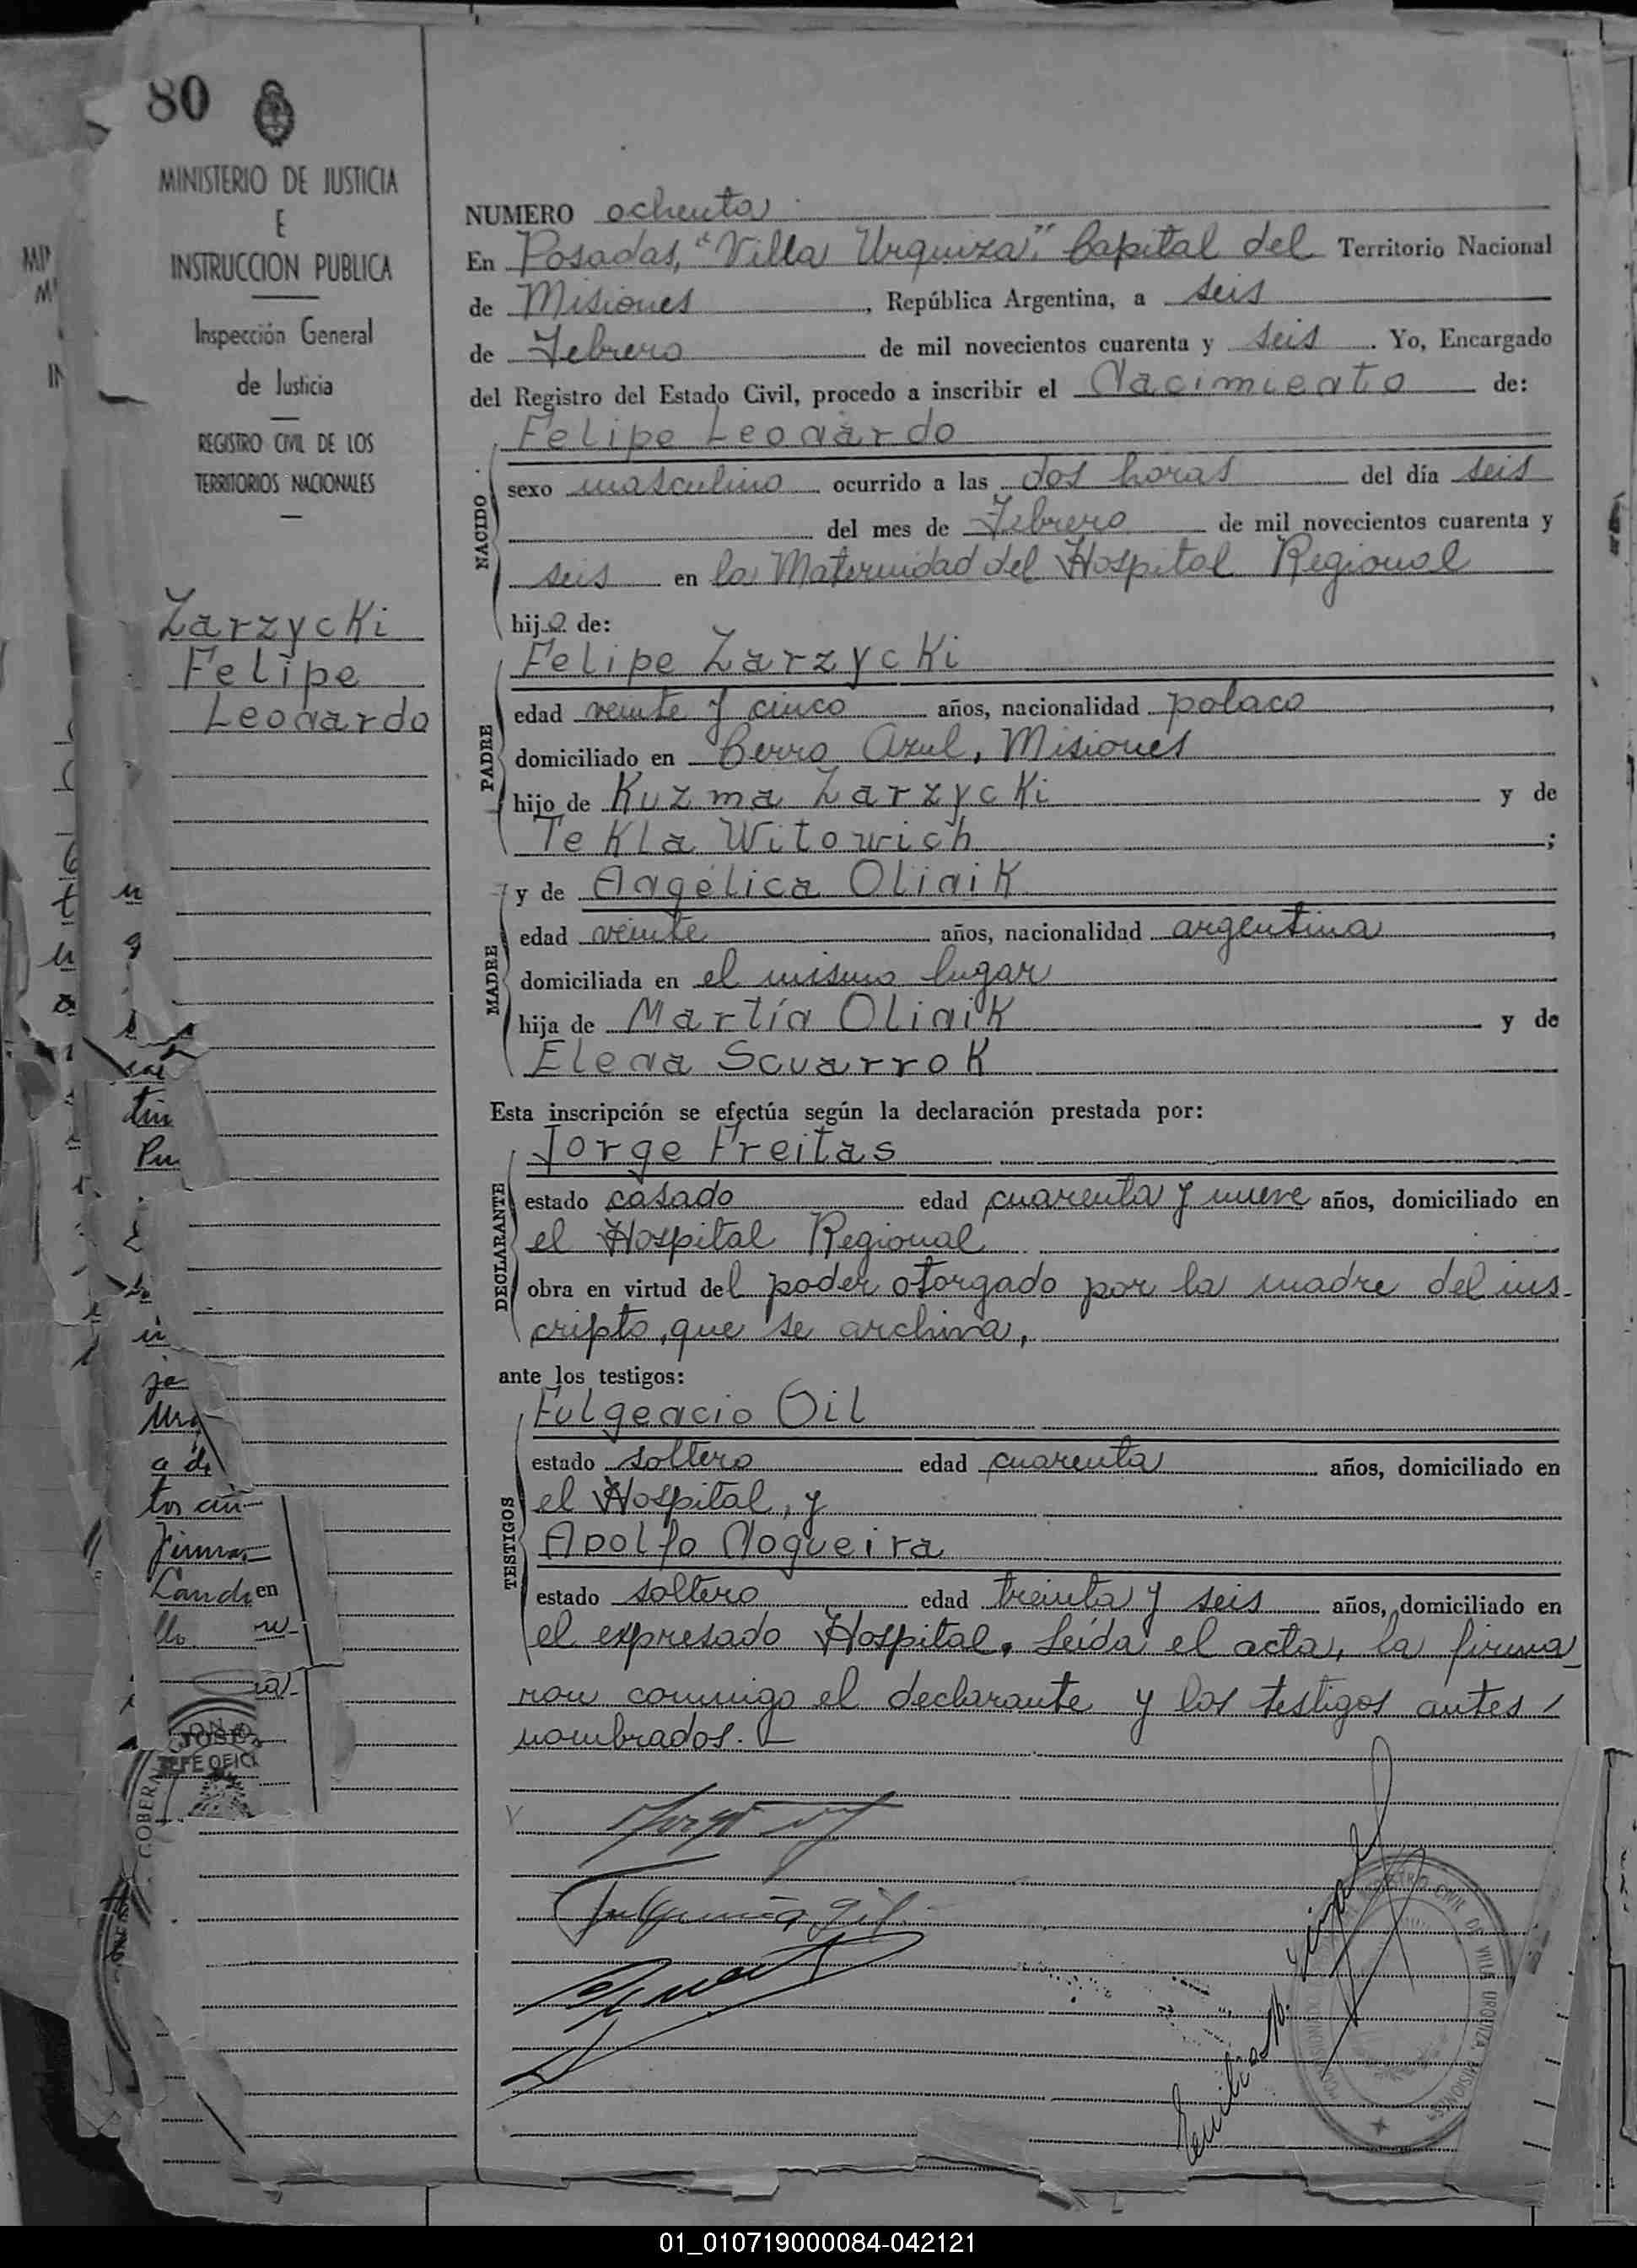 80
MINISTERIO DE JUSTICIA
E
INSTRUCCION PUBLICA
Inspección General
de Justicia
REGISTRO CIVIL DE LOS
TERRITORIOS NACIONALES
Zarzycki
Felipe
Leonardo
NUMERO ochenta
En Posadas, "Villa Urquiza", Capital del Territorio Nacional
de Misiones, República Argentina, a seis
de Febrero de mil novecientos cuarenta y seis. Yo, Encargado
del Registro del Estado Civil, procedo a inscribir el Nacimiento de:
NACIDO
Felipe Leonardo
sexo masculino ocurrido a las dos horas del día seis
del mes de Febrero de mil novecientos cuarenta y
seis en la Maternidad del Hospital Regional
hijo de:
PADRE
Felipe Zarzycki
edad veinte y cinco años, nacionalidad polaco,
domiciliado en Cerro Azul, Misiones
hijo de Kuzma Zarzycki y de
Tekla Witowich;
MADRE
y de Angélica Olinik
edad veinte años, nacionalidad argentina,
domiciliada en el mismo lugar
hija de Martín Olinik y de
Elena Scuarrok
Esta inscripción se efectúa según la declaración prestada por:
DECLARANTE
Jorge Freitas
estado casado edad cuarenta y nueve años, domiciliado en
el Hospital Regional
obra en virtud del poder otorgado por la madre del ins-
cripto, que se archiva,
ante los testigos:
TESTIGOS
Fulgencio Gil
estado soltero edad cuarenta años, domiciliado en
el Hospital, y
Adolfo Nogueira
estado soltero edad treinta y seis años, domiciliado en
el expresado Hospital. Leída el acta, la firma-
ron conmigo el declarante y los testigos antes
nombrados.
Fulgencio Gil
REGISTRO CIVIL DE VILLA URQUIZA MISIONES
01_010719000084-042121